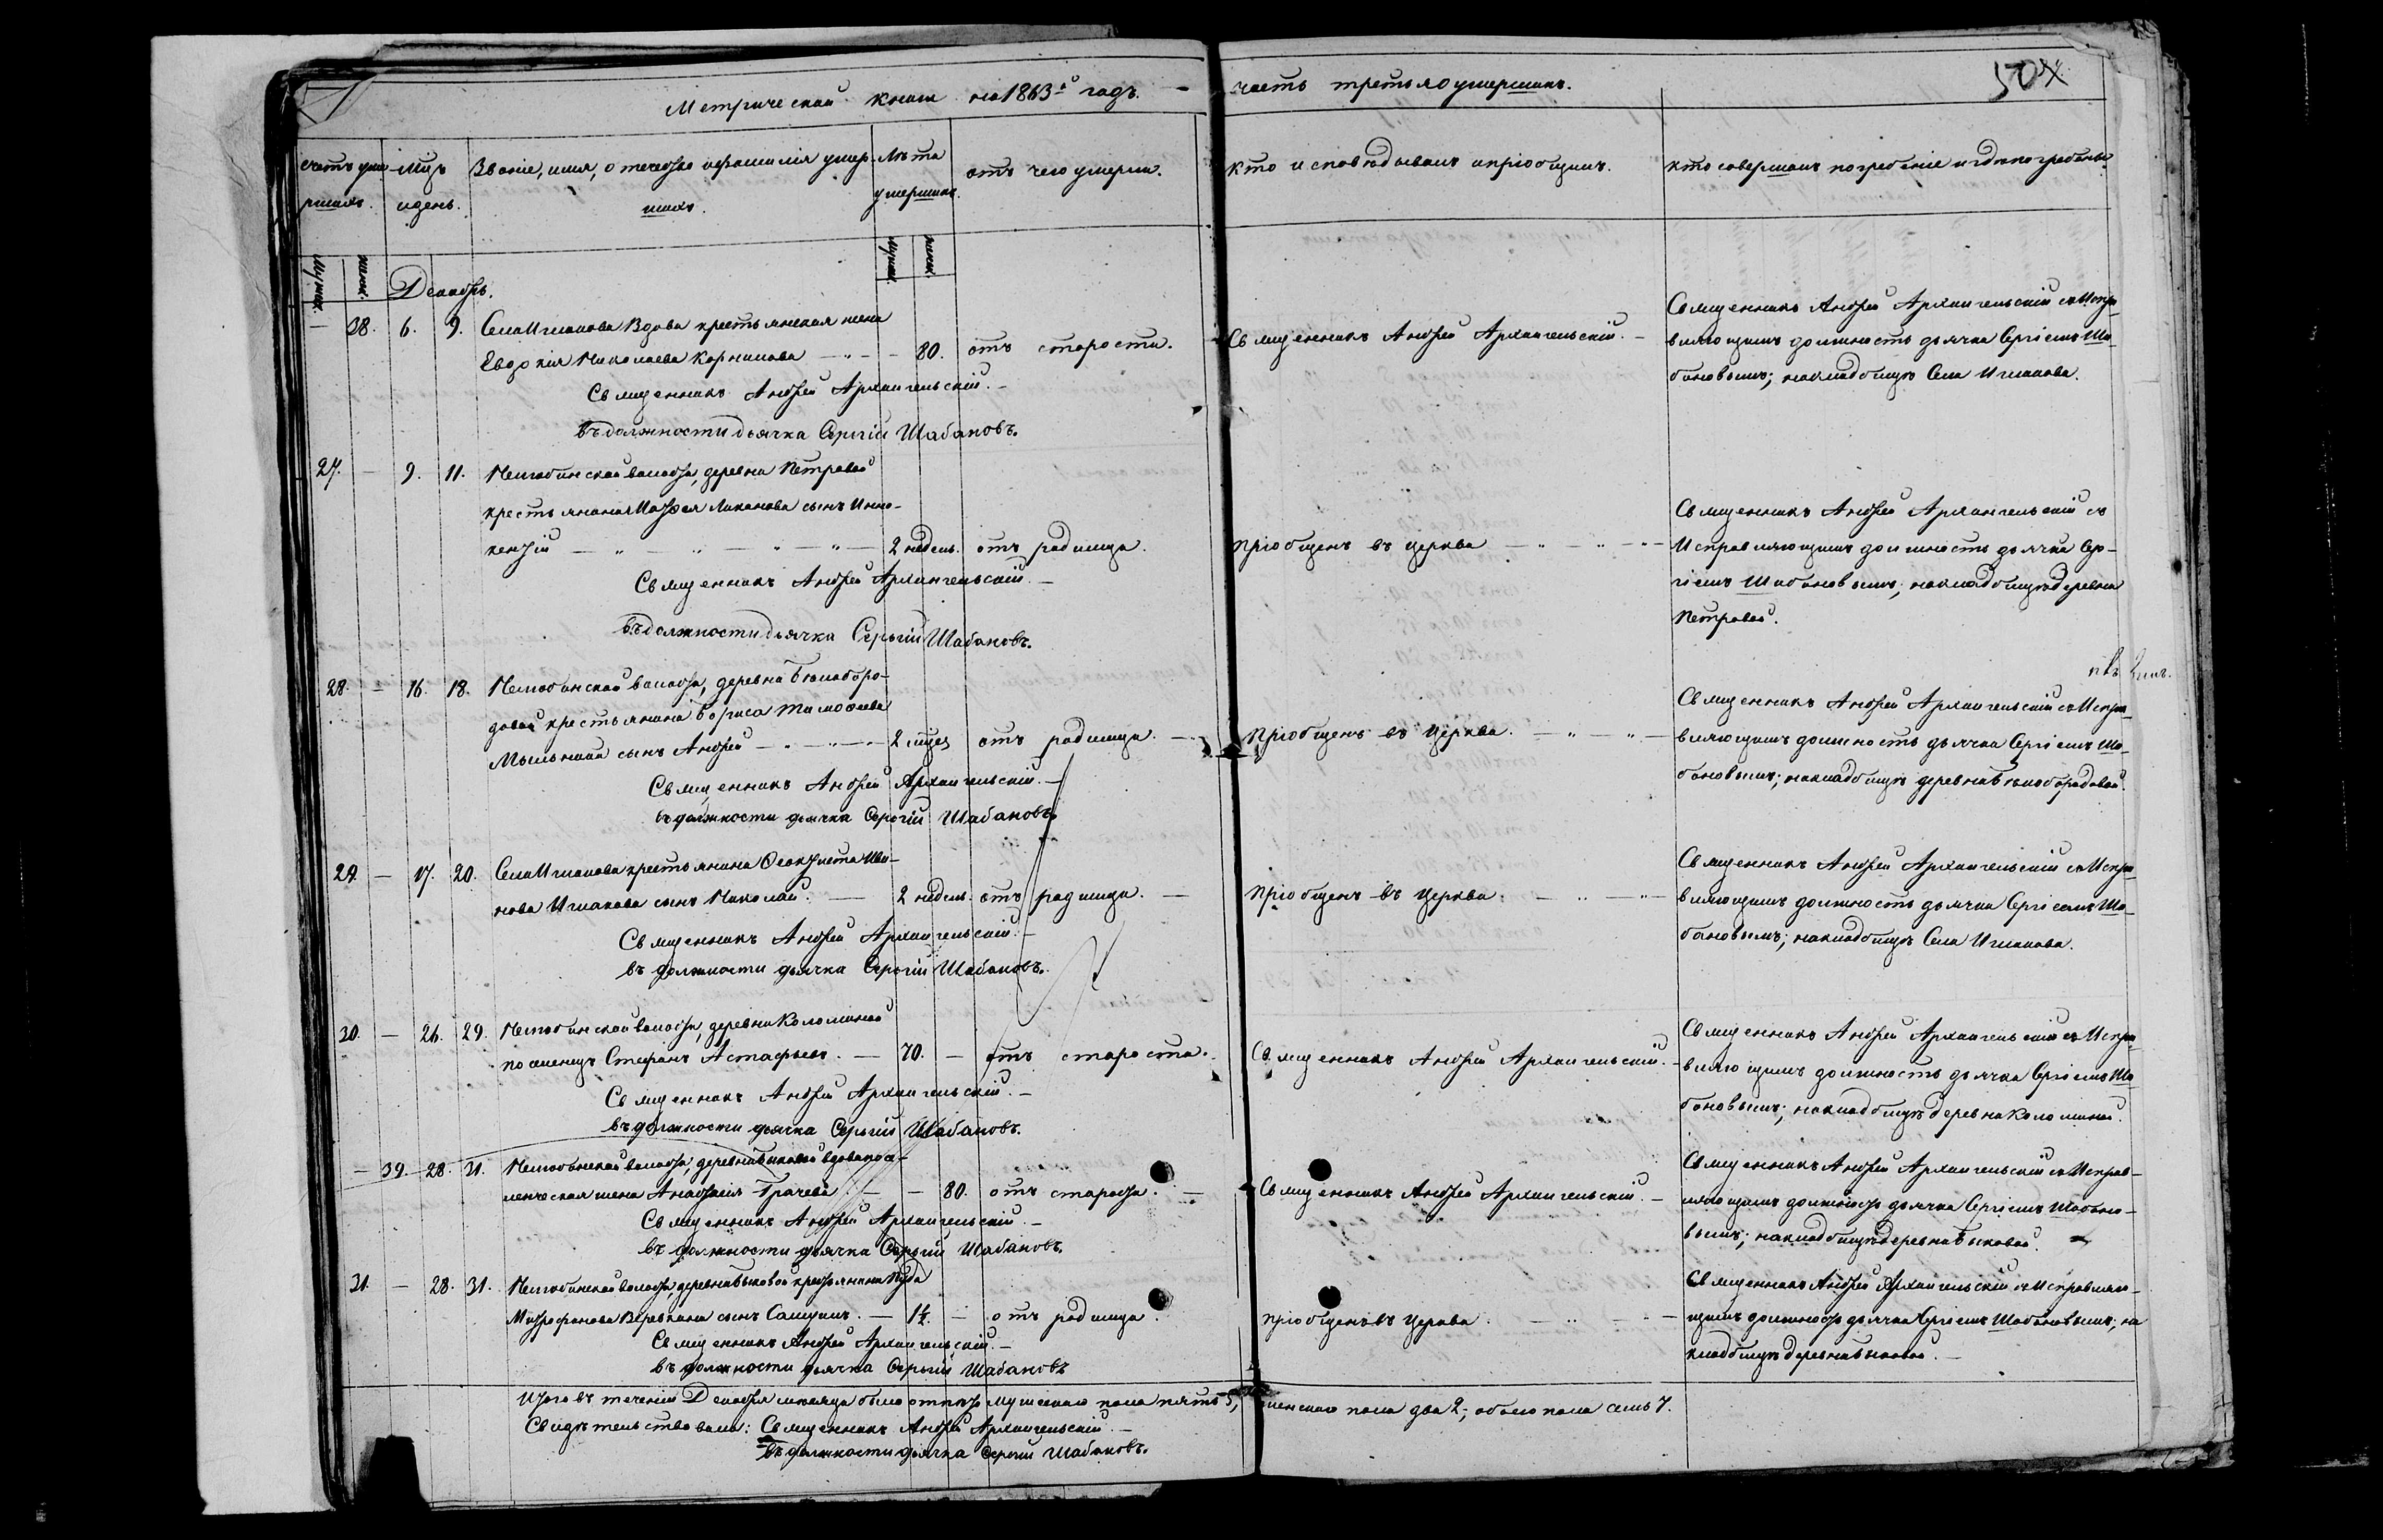 Метрической книги на 1863й годъ. — часть третья о умершихъ.
504
счетъ уме-
ршихъ.
Мцъ
и день.
Званіе, имя, отечество и фамилія умер-
шихъ.
Лѣта
умершихъ.
отъ чего умерли.
Кто исповѣдывалъ и пріобщилъ.
Кто совершалъ погребеніе и гдѣ погребены.
Мужск. женск.
Мужск. женск.
Декабрь.
— 38. 6. 9. Села Ишакова Вдова крестьянская жена
Евдокія Николаева Корнилова — „ — — 80. отъ старости.
Священникъ Андрей Архангельскій. —
Въ должности дьячка Сергій Шабановъ.
Священникъ Андрей Архангельскій. —
Священникъ Андрей Архангельскій съ Испра-
вляющимъ должность дьячка Сергіемъ Ша-
бановымъ; на кладбищѣ Села Ишакова.
27. — 9. 11. волости, деревни Петровой
крестьянина сынъ Инно-
кентій — „ — „ — „ — „ — 2 недѣль. отъ родимца.
Священникъ Андрей Архангельскій. —
Въ должности дьячка Сергій Шабановъ.
Пріобщенъ въ Церкви — „ — „ —
Священникъ Андрей Архангельскій съ
Исправляющимъ должность дьячка Сер-
гіемъ Шабановымъ; на кладбищѣ деревни
Петровой.
28. — 16. 18. волости, деревни Бѣлоборо-
довой крестьянина Бориса Тимофеева
Мыльникова сынъ Андрей — „ — „ — 2 мцез отъ родимца. —
Священникъ Андрей Архангельскій. —
въ должности дьячка Сергій Шабановъ.
Пріобщенъ въ Церкви. — „ — „ —
Священникъ Андрей Архангельскій съ Испра-
вляющимъ должность дьячка Сергіемъ Ша-
бановымъ; на кладбищѣ деревни Бѣлобородовой.
29. — 17. 20. Села Ишакова крестьянина Феоктиста Ива-
нова Ишакова сынъ Николай. — 2 недѣль. отъ родимца. —
Священникъ Андрей Архангельскій. —
въ должности дьячка Сергій Шабановъ.
Пріобщенъ въ Церкви. — „ — „ —
Священникъ Андрей Архангельскій съ Испра-
вляющимъ должность дьячка Сергіемъ Ша-
бановымъ; на кладбищѣ Села Ишакова.
30. — 26. 29. волости, деревни Коломиной
поселенецъ Стефанъ Астафьевъ. — 70. — отъ старости.
Священникъ Андрей Архангельскій. —
въ должности дьячка Сергій Шабановъ.
Священникъ Андрей Архангельскій. —
Священникъ Андрей Архангельскій съ Испра-
вляющимъ должность дьячка Сергіемъ Ша-
бановымъ; на кладбищѣ деревни Коломиной.
— 39. 28. 31. волости, деревни Быковой вдова посе-
ленческая жена Анастасія Грачева. — — 80. отъ старости. —
Священникъ Андрей Архангельскій. —
въ должности дьячка Сергій Шабановъ.
Священникъ Андрей Архангельскій. —
Священникъ Андрей Архангельскій съ Исправ-
ляющимъ должность дьячка Сергіемъ Шабано-
вымъ; на кладбищѣ деревни Быковой.
31. — 28. 31. волости, деревни Быковой крестьянина
Митрофанова сынъ Самуилъ. — 1½. — отъ родимца.
Священникъ Андрей Архангельскій. —
въ должности дьячка Сергій Шабановъ
Пріобщенъ въ Церкви. — „ — „ —
Священникъ Андрей Архангельскій съ Исправляю-
щимъ должность дьячка Сергіемъ Шабановымъ; на
кладбищѣ деревни Быковой. —
Итого въ теченіи Декабря мѣсяца было отпѣто мужескаго пола пять 5, женскаго пола два 2; обоего пола семь 7.
Свидѣтельствовали: Священникъ Андрей Архангельскій. —
Въ должности дьячка Сергій Шабановъ.